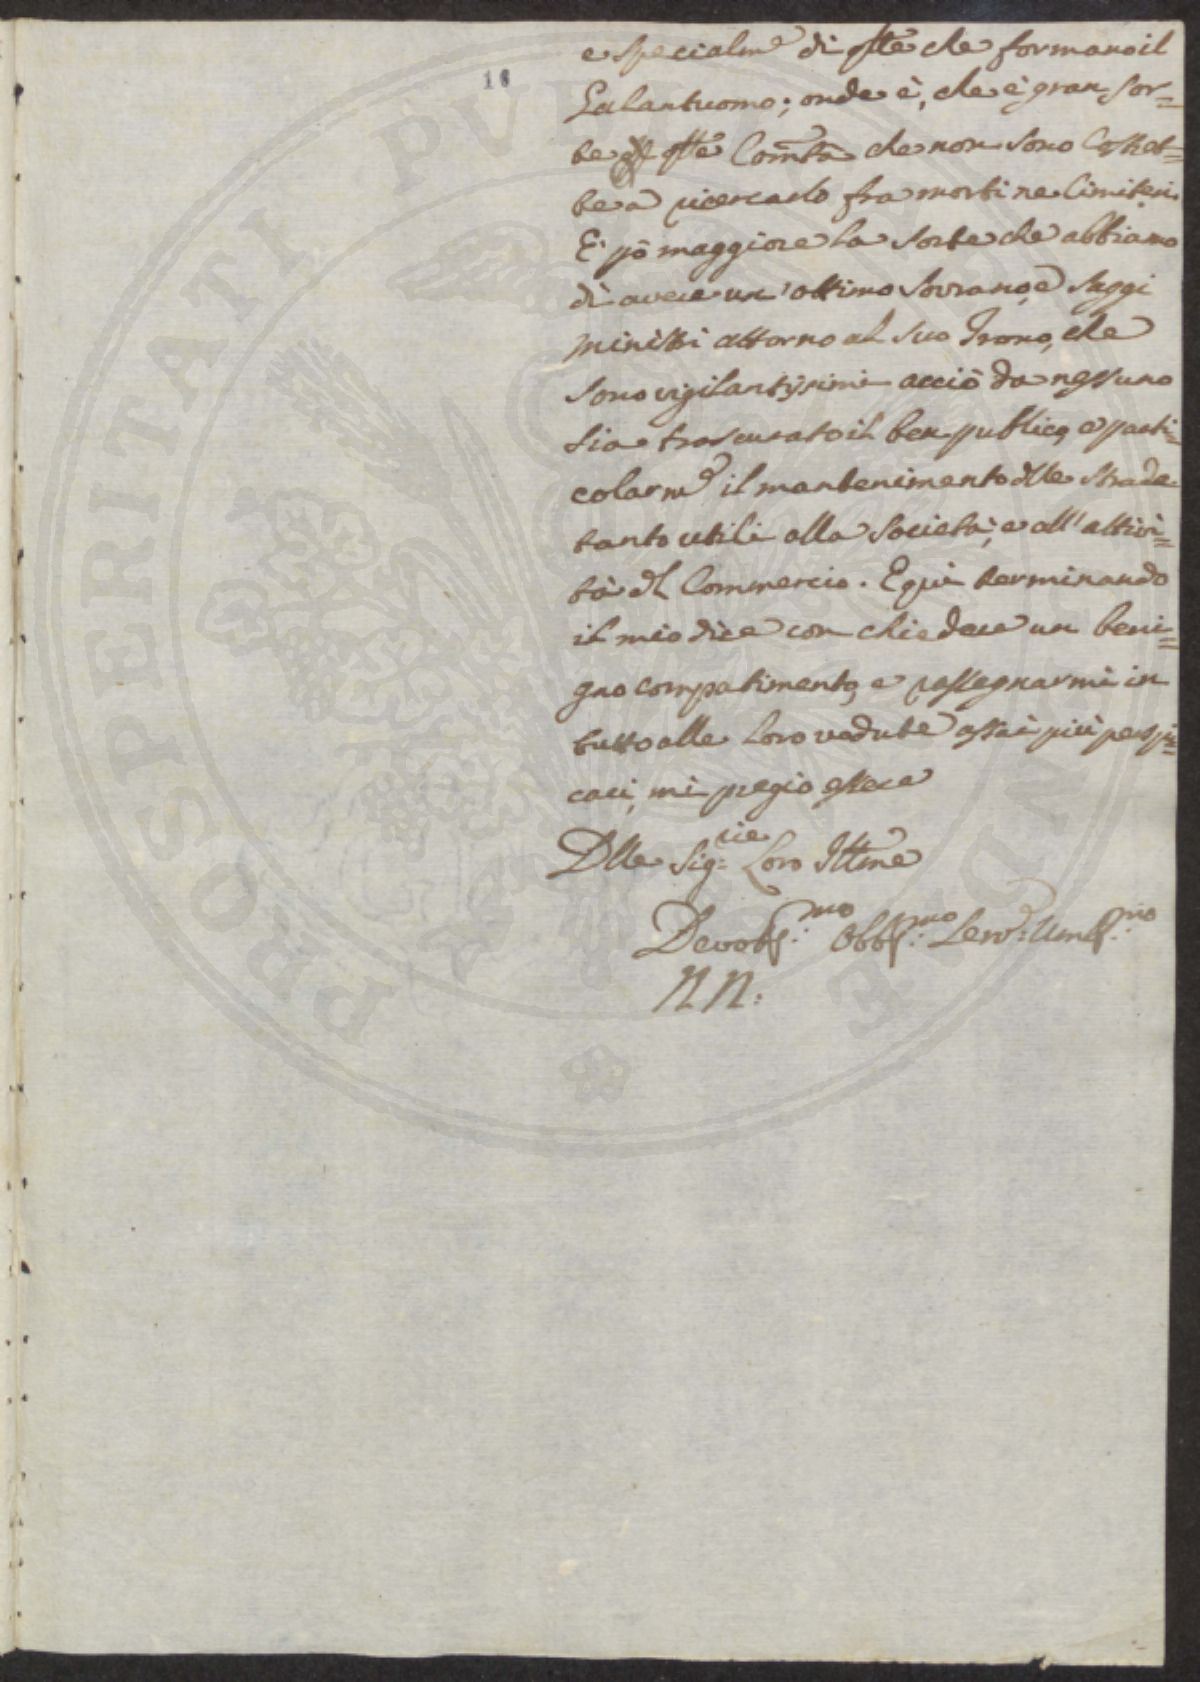 18
e specialm.e di qste che formano il
Galantuomo; onde è, che è gran sor=
te qste Com.tà che non sono Costret=
te a ricercarlo fra morti ne Cimiterj.
E' pò maggiore la sorte che abbiamo
di avere un' ottimo Sovrano, e Saggi
Ministri attorno al suo Trono, che
sono vigilantissimi acciò da nessuno
sia trascurato il ben publico, e parti=
colarm.e il mantenimento dlle Strade
tanto utili alla Società, e all' attivi=
tà dl Commercio. E quì terminando
il mio dire con chiedere un beni=
gno compatimento, e rassegnarmi in
tutto alle loro vedute assai più perspi=
caci, mi pregio essere
Dlle Sig:rie Loro Illme
Devotiss:mo Obblig:mo Serv:e Umiliss:mo
N N:
PROSPERITATI PUBLICAE